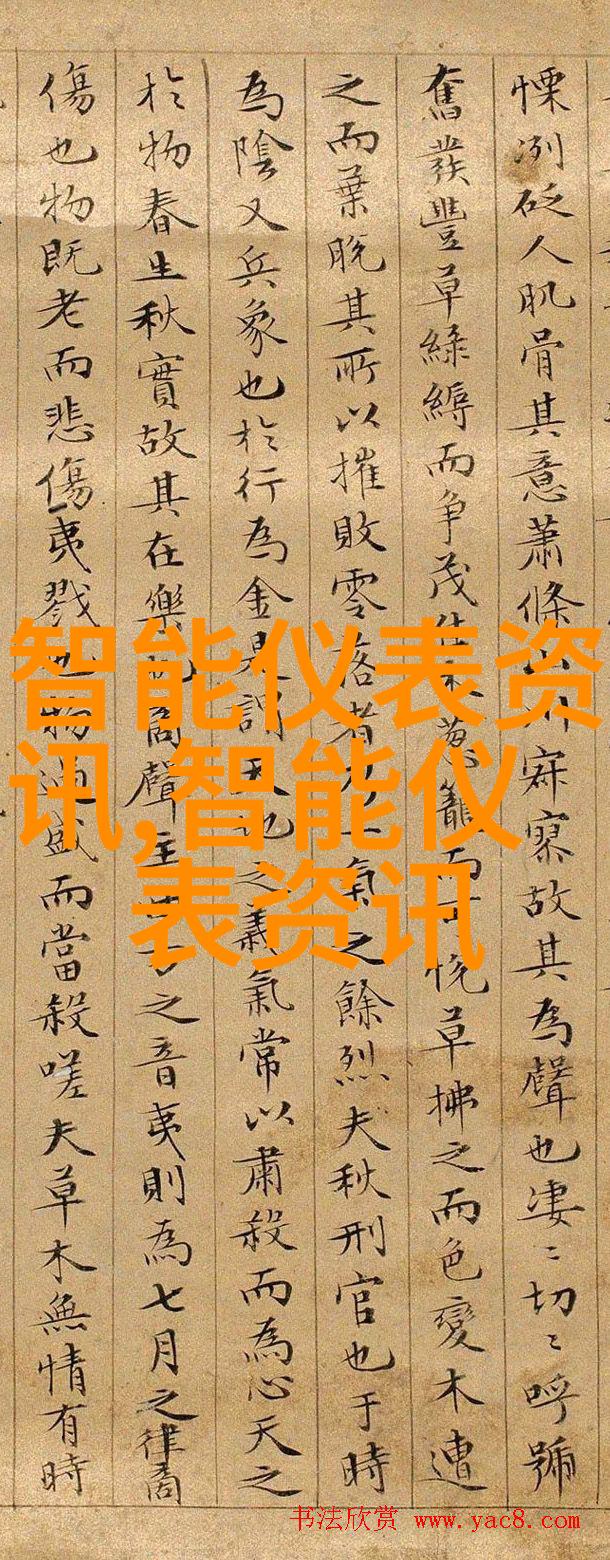 慄冽砭人肌骨其意蕭條山川寂寥故其為聲也淒〻切〻呼號
奮發豐草綠縟而争茂佳木葱籠而可悅草拂之而色變木遭
之而葉脫其所以摧敗零落者乃一氣之餘烈夫秋刑官也于時
為陰又兵象也於行為金是謂天地之義氣常以肅殺而為心天之
於物春生秋實故其在樂也商聲主之音夷則為七月之律商
傷也物既老而悲傷夷戮也物過盛而當殺嗟夫草木無情有時
智能仪表资
讯,智能仪
表资讯
书法欣赏 www.yac8.com